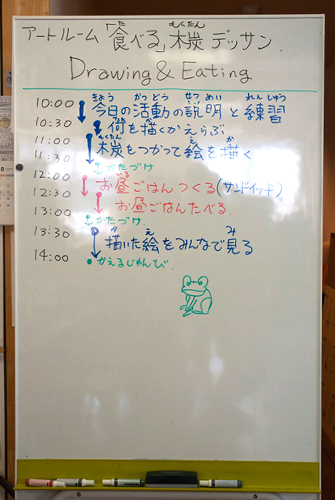 アートルーム「食べる」木炭デッサン
Drawing & Eating
10:00 今日の活動の説明と練習
10:30 何を描くかえらぶ
11:00 木炭をつかって絵を描く
11:30 かたづけ
12:00 お昼ごはんつくる(サンドイッチ)
12:30 お昼ごはんたべる
13:00 かたづけ
13:30 描いた絵をみんなで見る
14:00 かえるじゅんび